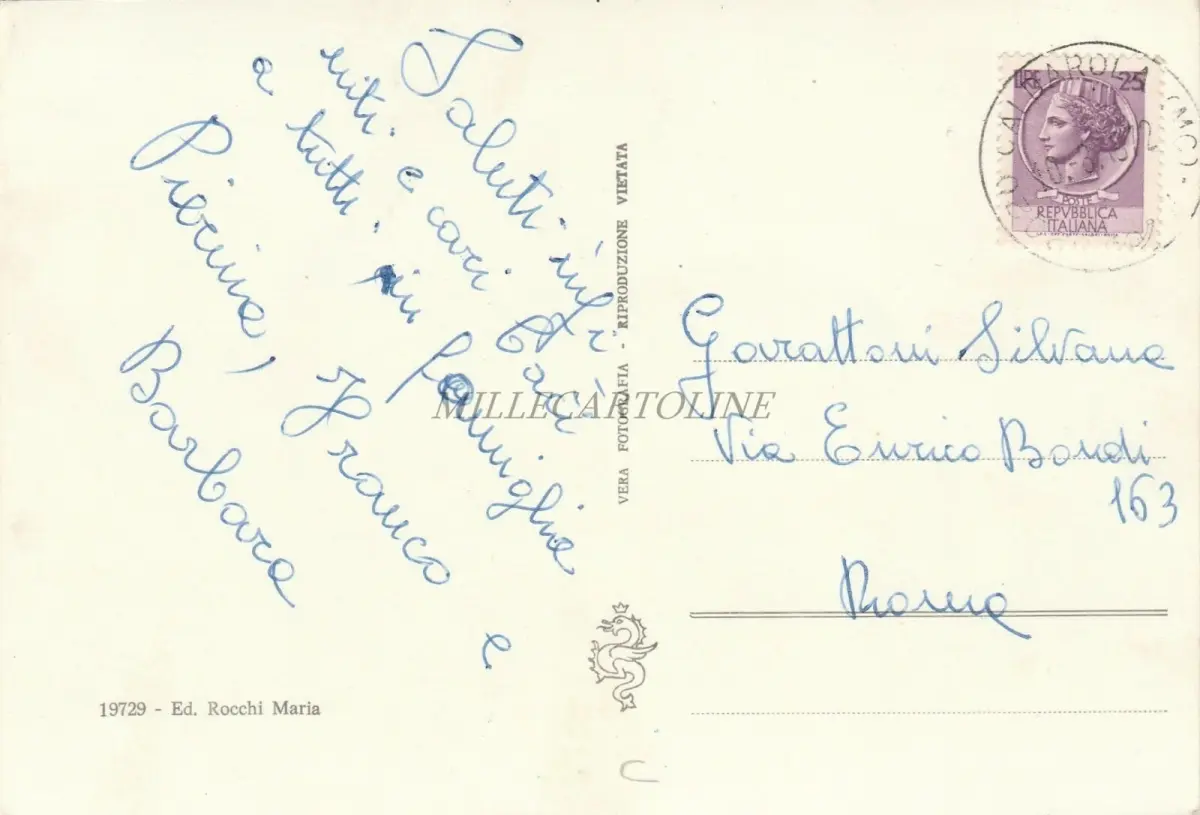 Saluti infi
niti. e cari baci
a tutti. in famiglia
Pierina, Franco e
Barbara
19729 - Ed. Rocchi Maria
VERA FOTOGRAFIA - RIPRODUZIONE VIETATA
MILLECARTOLINE
LIRE 25
POSTE
REPVBBLICA
ITALIANA
CALDAROLA (MC)
Garattoni Silvana
Via Enrico Bondi
163
Roma
C